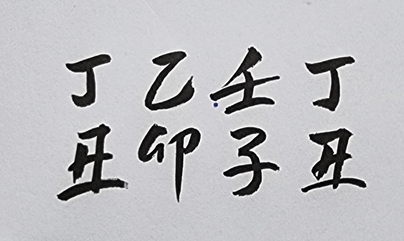 丁乙壬丁
丑卯子丑